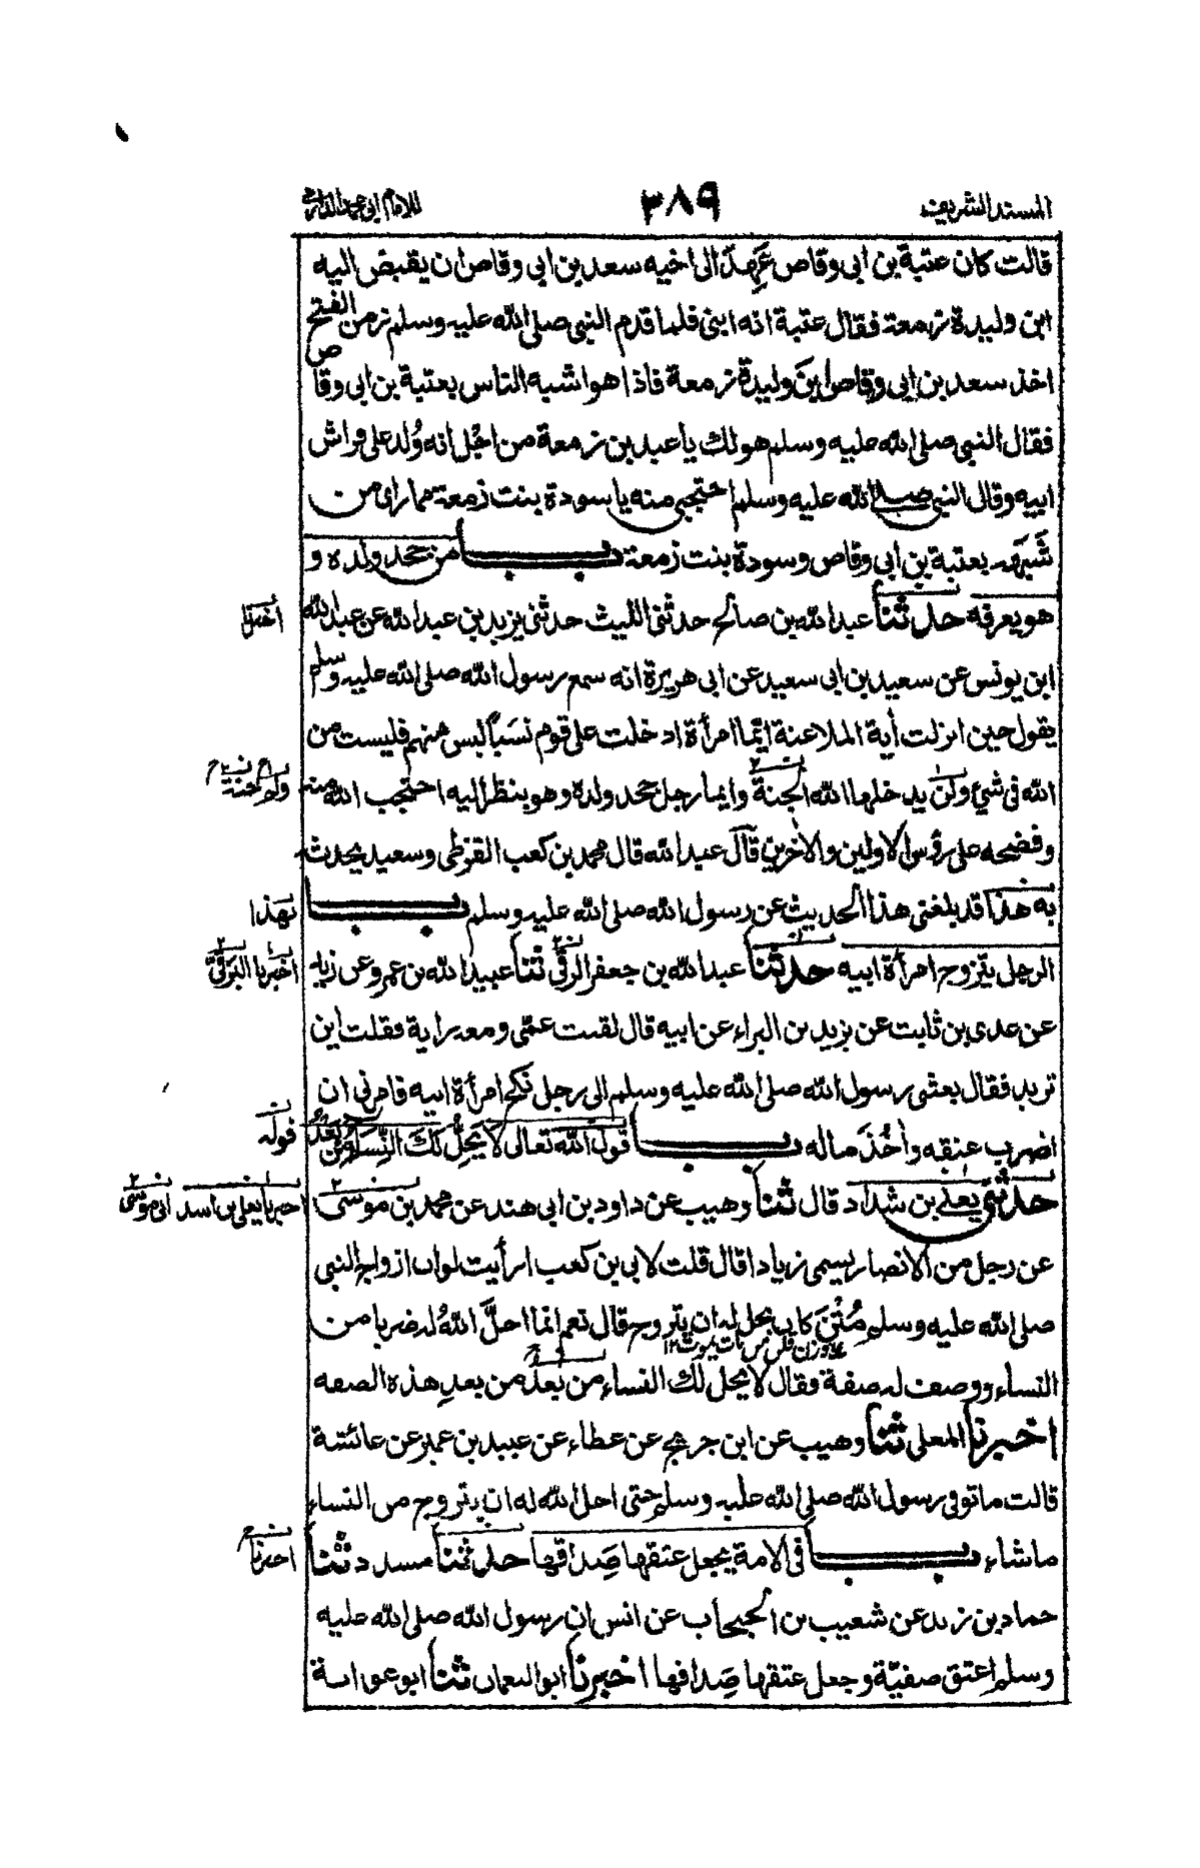 المسند الشريف
٣٨٩
للامام ابی محمد الدارمی
قالت كان عتبة بن ابی وقاص عَهِدَ الی اخيه سعد بن ابی وقاص ان يقبض اليه
ابن وليدة زمعة فقال عتبة انه ابنی فلما قدم النبی صلی الله عليه وسلم زمن الفتح
اخذ سعد بن ابی وقاص ابنَ وليدة زمعة فاذا هو اشبه الناس بعتبة بن ابی وقاص
فقال النبی صلی الله عليه وسلم هو لك يا عبد بن زمعة من اجْل انه وُلد علی فراش
ابيه وقال النبی صلی الله عليه وسلم احتجبی منه يا سودة بنت زمعة مما رای من
شَبَهه بعتبة بن ابی وقاص وسودة بنت زمعة باب من جحد ولده و
هو يعرفه حدثنا عبد الله بن صالح حدثنی الليث حدثنی يزيد بن عبد الله عن عبد الله
اخبرنا
ابن يونس عن سعيد بن ابی سعيد عن ابی هريرة انه سمع رسول الله صلی الله عليه وسلم
يقول حين انزلت أية الملاعنة ايّما امرأة ادخلت علی قوم نسَبًا ليس منهم فليست من
الله فی شیء ولن يدخلها الله الجنة وايما رجل جحد ولده وهو ينظر اليه احتجب الله منه
ولم جنته
وفضحه علی رؤس الاولين والاخرين قال عبد الله قال محمد بن كعب القرظی وسعيد يحدثه
به هذا قد بلغنی هذا الحديث عن رسول الله صلی الله عليه وسلم باب
بهذا
الرجل يتزوج امرأة ابيه حدثنا عبد الله بن جعفر الرقی ثنا عبيد الله بن عمرو عن زيد
اخبرنا
عن عدی بن ثابت عن يزيد بن البراء عن ابيه قال لقيت عمّی ومعه راية فقلت اين
تريد فقال بعثنی رسول الله صلی الله عليه وسلم الی رجل نكح امرأة ابيه فامرنی ان
اضرب عنقه وأخُذَ ماله باب قول الله تعالی لا يَحِلُّ لَكَ النِّسَاءُ مِنْ بَعْدُ
قوله
حدثنی يعلی بن شداد قال ثنا وهيب عن داود بن ابی هند عن محمد بن موسی
اخبرنا يعلی بن اسد ابی موسی
عن رجل من الانصار يسمی زيادا قال قلت لابی بن كعب ارأيت لو ان ازواج النبی
صلی الله عليه وسلم مُتْنَ كان يحل له ان يتزوج قال نعم انما احلَّ اللهُ له ضربا من
علی وزن قلن من مات يموت ١٢
النساء ووصف له صفة فقال لا يحل لك النساء من بعد من بعدِ هذه الصفة
اخبرنا المعلی ثنا وهيب عن ابن جريج عن عطاء عن عبيد بن عمير عن عائشة
قالت ما توفی رسول الله صلی الله عليه وسلم حتی احل الله له ان يتزوج من النساء
ما شاء باب فی الامة يجعل عتقها صِداقها حدثنا مسدد ثنا
اخبرنا
حماد بن زيد عن شعيب بن الحبحاب عن انس ان رسول الله صلی الله عليه
وسلم اعتق صفيّة وجعل عتقها صِداقها اخبرنا ابو النعمان ثنا ابو عوانة